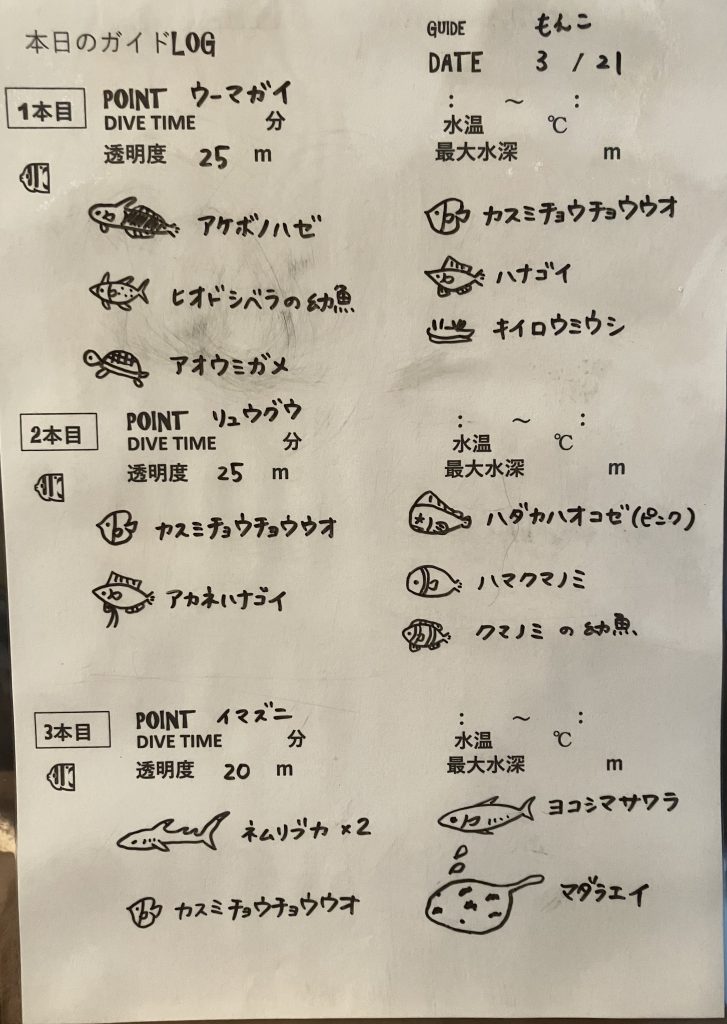 本日のガイドLOG
GUIDE もんこ
DATE 3 / 21
1本目 POINT ウーマガイ : ～ :
DIVE TIME 分 水温 ℃
透明度 25 m 最大水深 m
アケボノハゼ
ヒオドシベラの幼魚
アオウミガメ
カスミチョウチョウウオ
ハナゴイ
キイロウミウシ
2本目 POINT リュウグウ : ～ :
DIVE TIME 分 水温 ℃
透明度 25 m 最大水深 m
カスミチョウチョウウオ
アカネハナゴイ
ハダカハオコゼ(ピンク)
ハマクマノミ
クマノミの幼魚
3本目 POINT イマズニ : ～ :
DIVE TIME 分 水温 ℃
透明度 20 m 最大水深 m
ネムリブカ ×2
カスミチョウチョウウオ
ヨコシマサワラ
マダラエイ